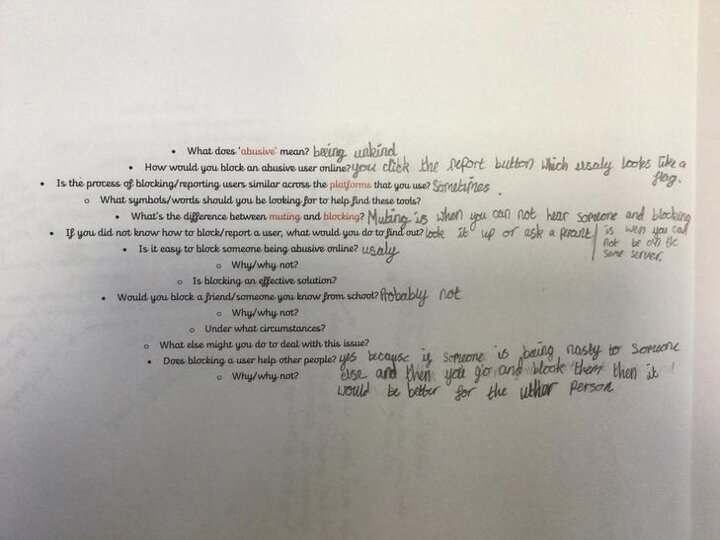 • What does 'abusive' mean? beeing unkind
• How would you block an abusive user online? you click the report button which usaly looks like a flag.
• Is the process of blocking/reporting users similar across the platforms that you use? Sometimes.
○ What symbols/words should you be looking for to help find these tools?
• What's the difference between muting and blocking? Muting is when you can not hear someone and blocking is wen you can not be on the same server.
• If you did not know how to block/report a user, what would you do to find out? look it up or ask a perant
• Is it easy to block someone being abusive online? usaly
○ Why/why not?
○ Is blocking an effective solution?
• Would you block a friend/someone you know from school? Probably not
○ Why/why not?
○ Under what circumstances?
○ What else might you do to deal with this issue?
• Does blocking a user help other people? yes because if someone is being nasty to someone
○ Why/why not? else and then you go and block them then it
would be better for the uther person